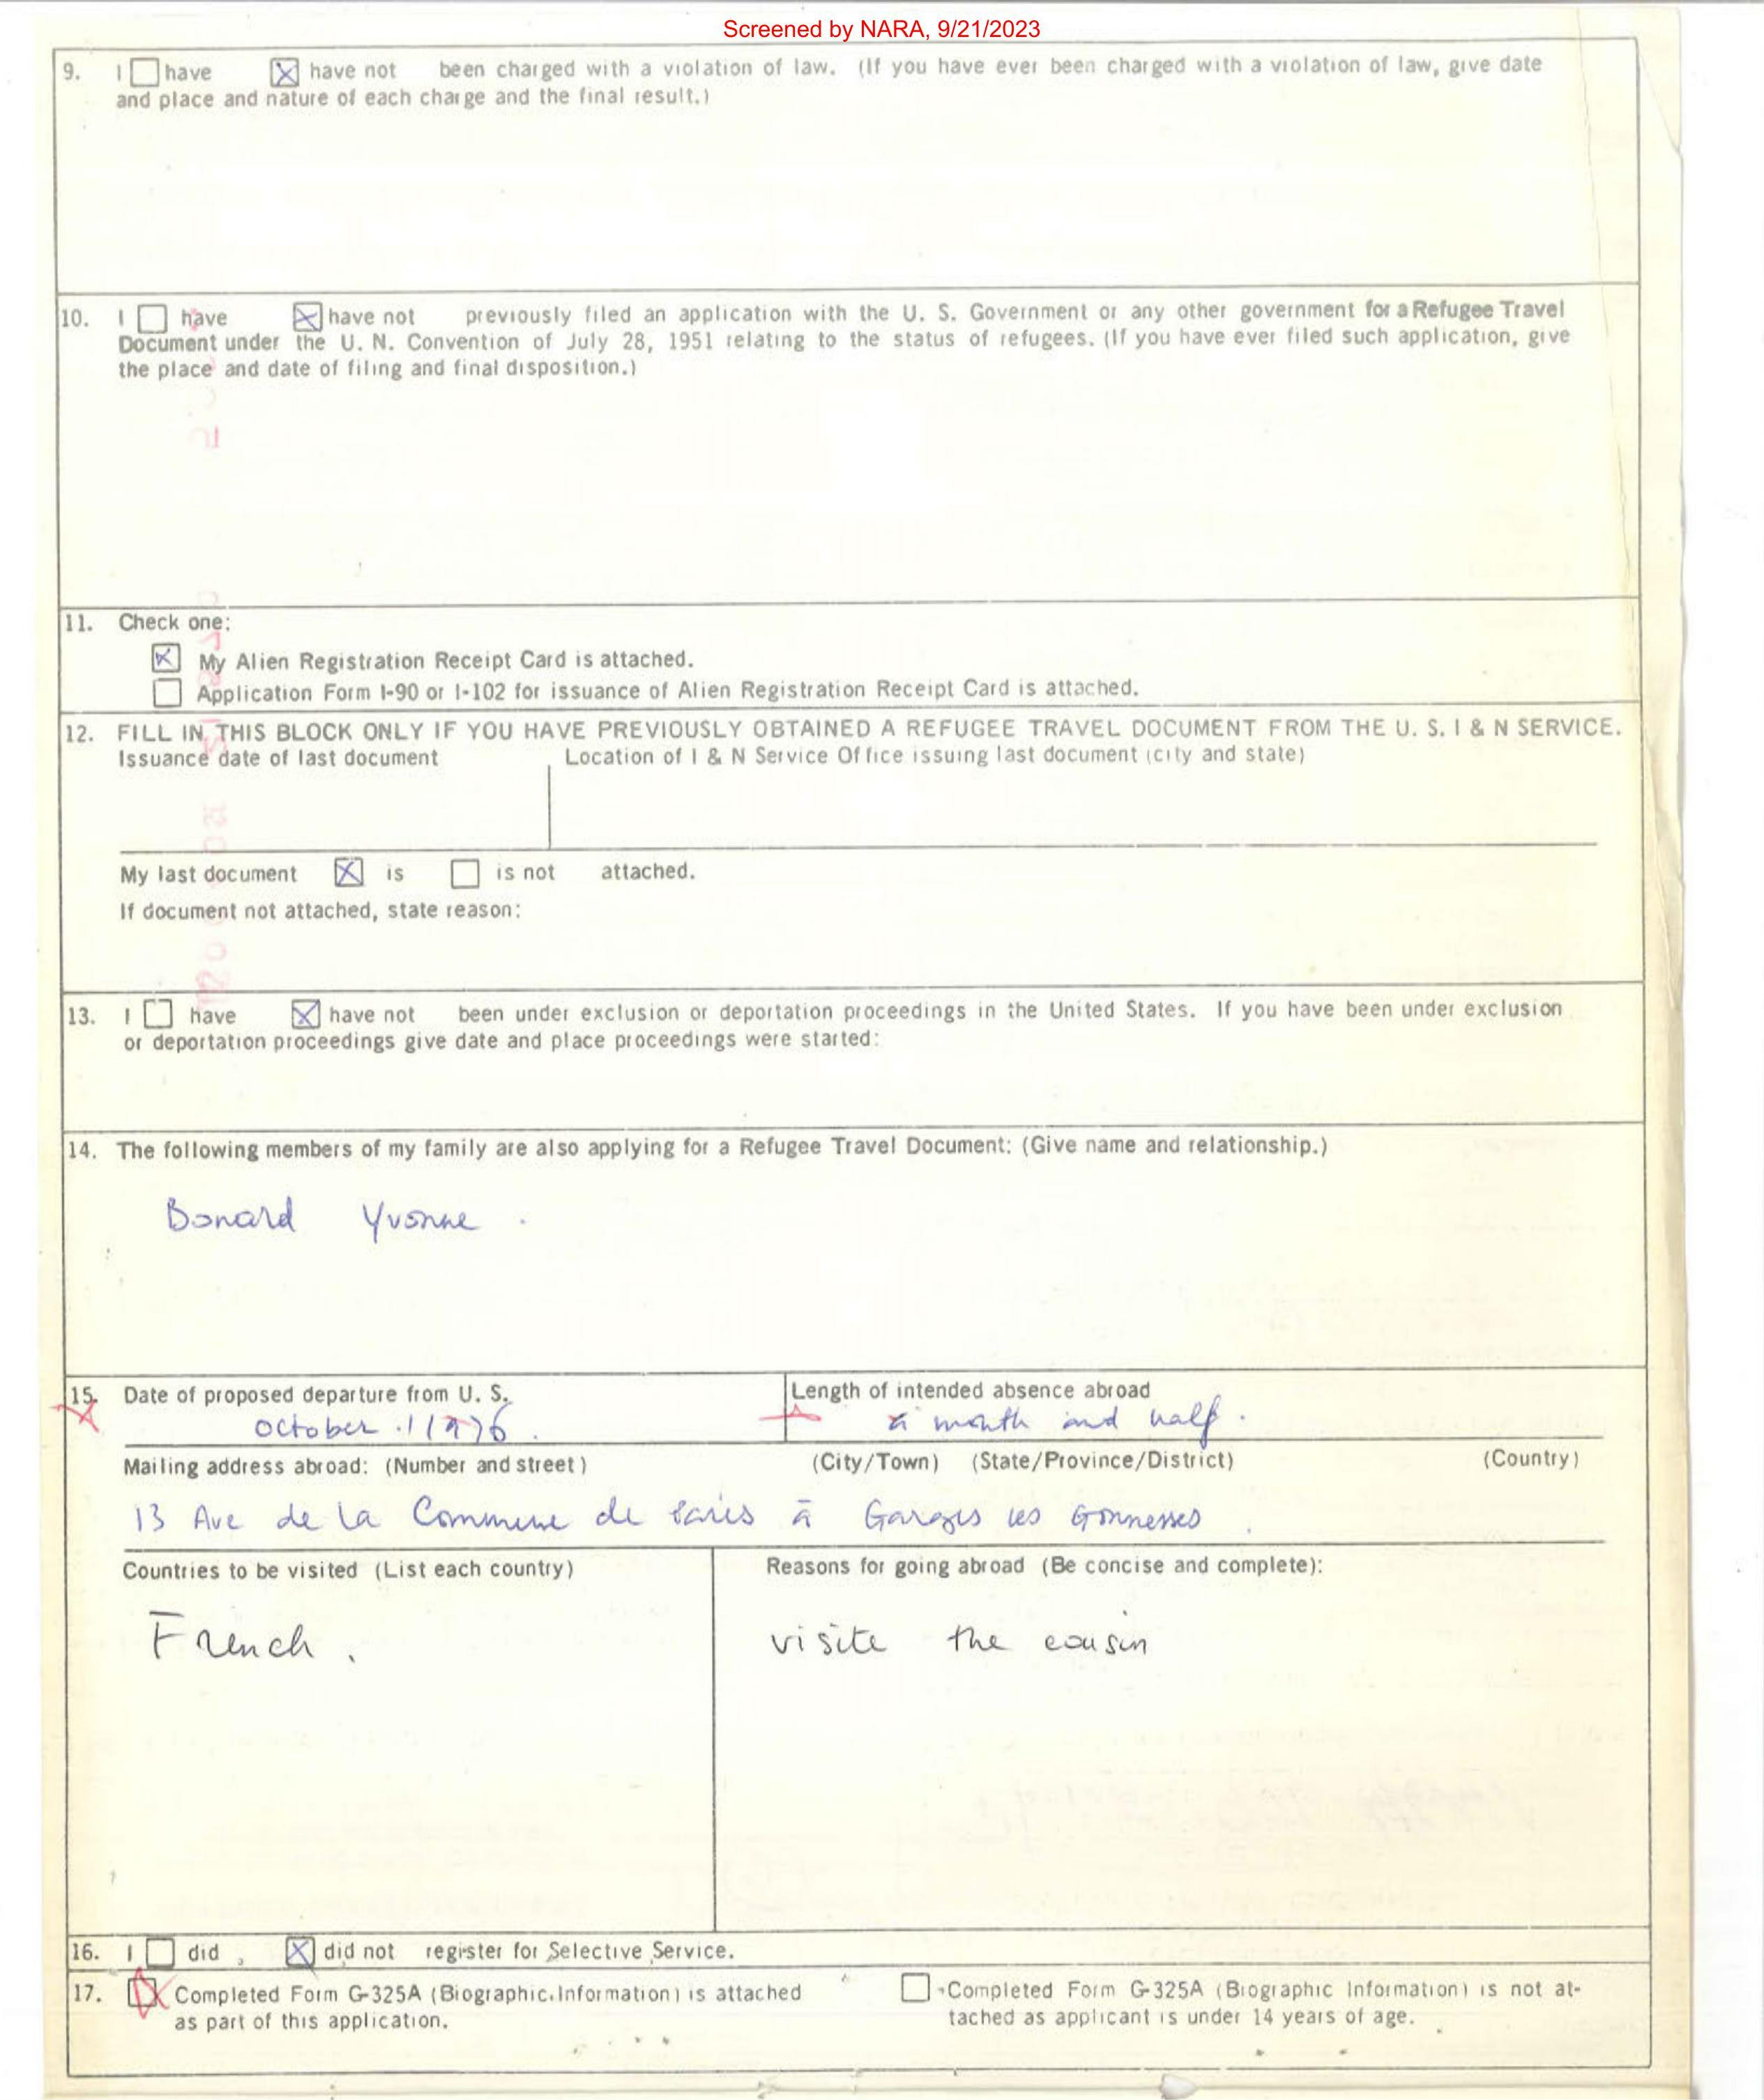 Screened by NARA, 9/21/2023
9. I ☐ have ☒ have not been charged with a violation of law. (If you have ever been charged with a violation of law, give date
and place and nature of each charge and the final result.)
10. I ☐ have ☒ have not previously filed an application with the U. S. Government or any other government for a Refugee Travel
Document under the U. N. Convention of July 28, 1951 relating to the status of refugees. (If you have ever filed such application, give
the place and date of filing and final disposition.)
11. Check one:
☒ My Alien Registration Receipt Card is attached.
☐ Application Form I-90 or I-102 for issuance of Alien Registration Receipt Card is attached.
12. FILL IN THIS BLOCK ONLY IF YOU HAVE PREVIOUSLY OBTAINED A REFUGEE TRAVEL DOCUMENT FROM THE U. S. I & N SERVICE.
Issuance date of last document Location of I & N Service Office issuing last document (city and state)
My last document ☒ is ☐ is not attached.
If document not attached, state reason:
13. I ☐ have ☒ have not been under exclusion or deportation proceedings in the United States. If you have been under exclusion
or deportation proceedings give date and place proceedings were started:
14. The following members of my family are also applying for a Refugee Travel Document: (Give name and relationship.)
Bonard Yvonne .
15. Date of proposed departure from U. S. Length of intended absence abroad
October 1976. a month and half.
Mailing address abroad: (Number and street) (City/Town) (State/Province/District) (Country)
13 Ave de la Commune de Paris à Garges les Gonnesses.
Countries to be visited (List each country) Reasons for going abroad (Be concise and complete):
French. visite the cousin
16. I ☐ did ☒ did not register for Selective Service.
17. ☒ Completed Form G-325A (Biographic Information) is attached ☐ Completed Form G-325A (Biographic Information) is not at-
as part of this application. tached as applicant is under 14 years of age.